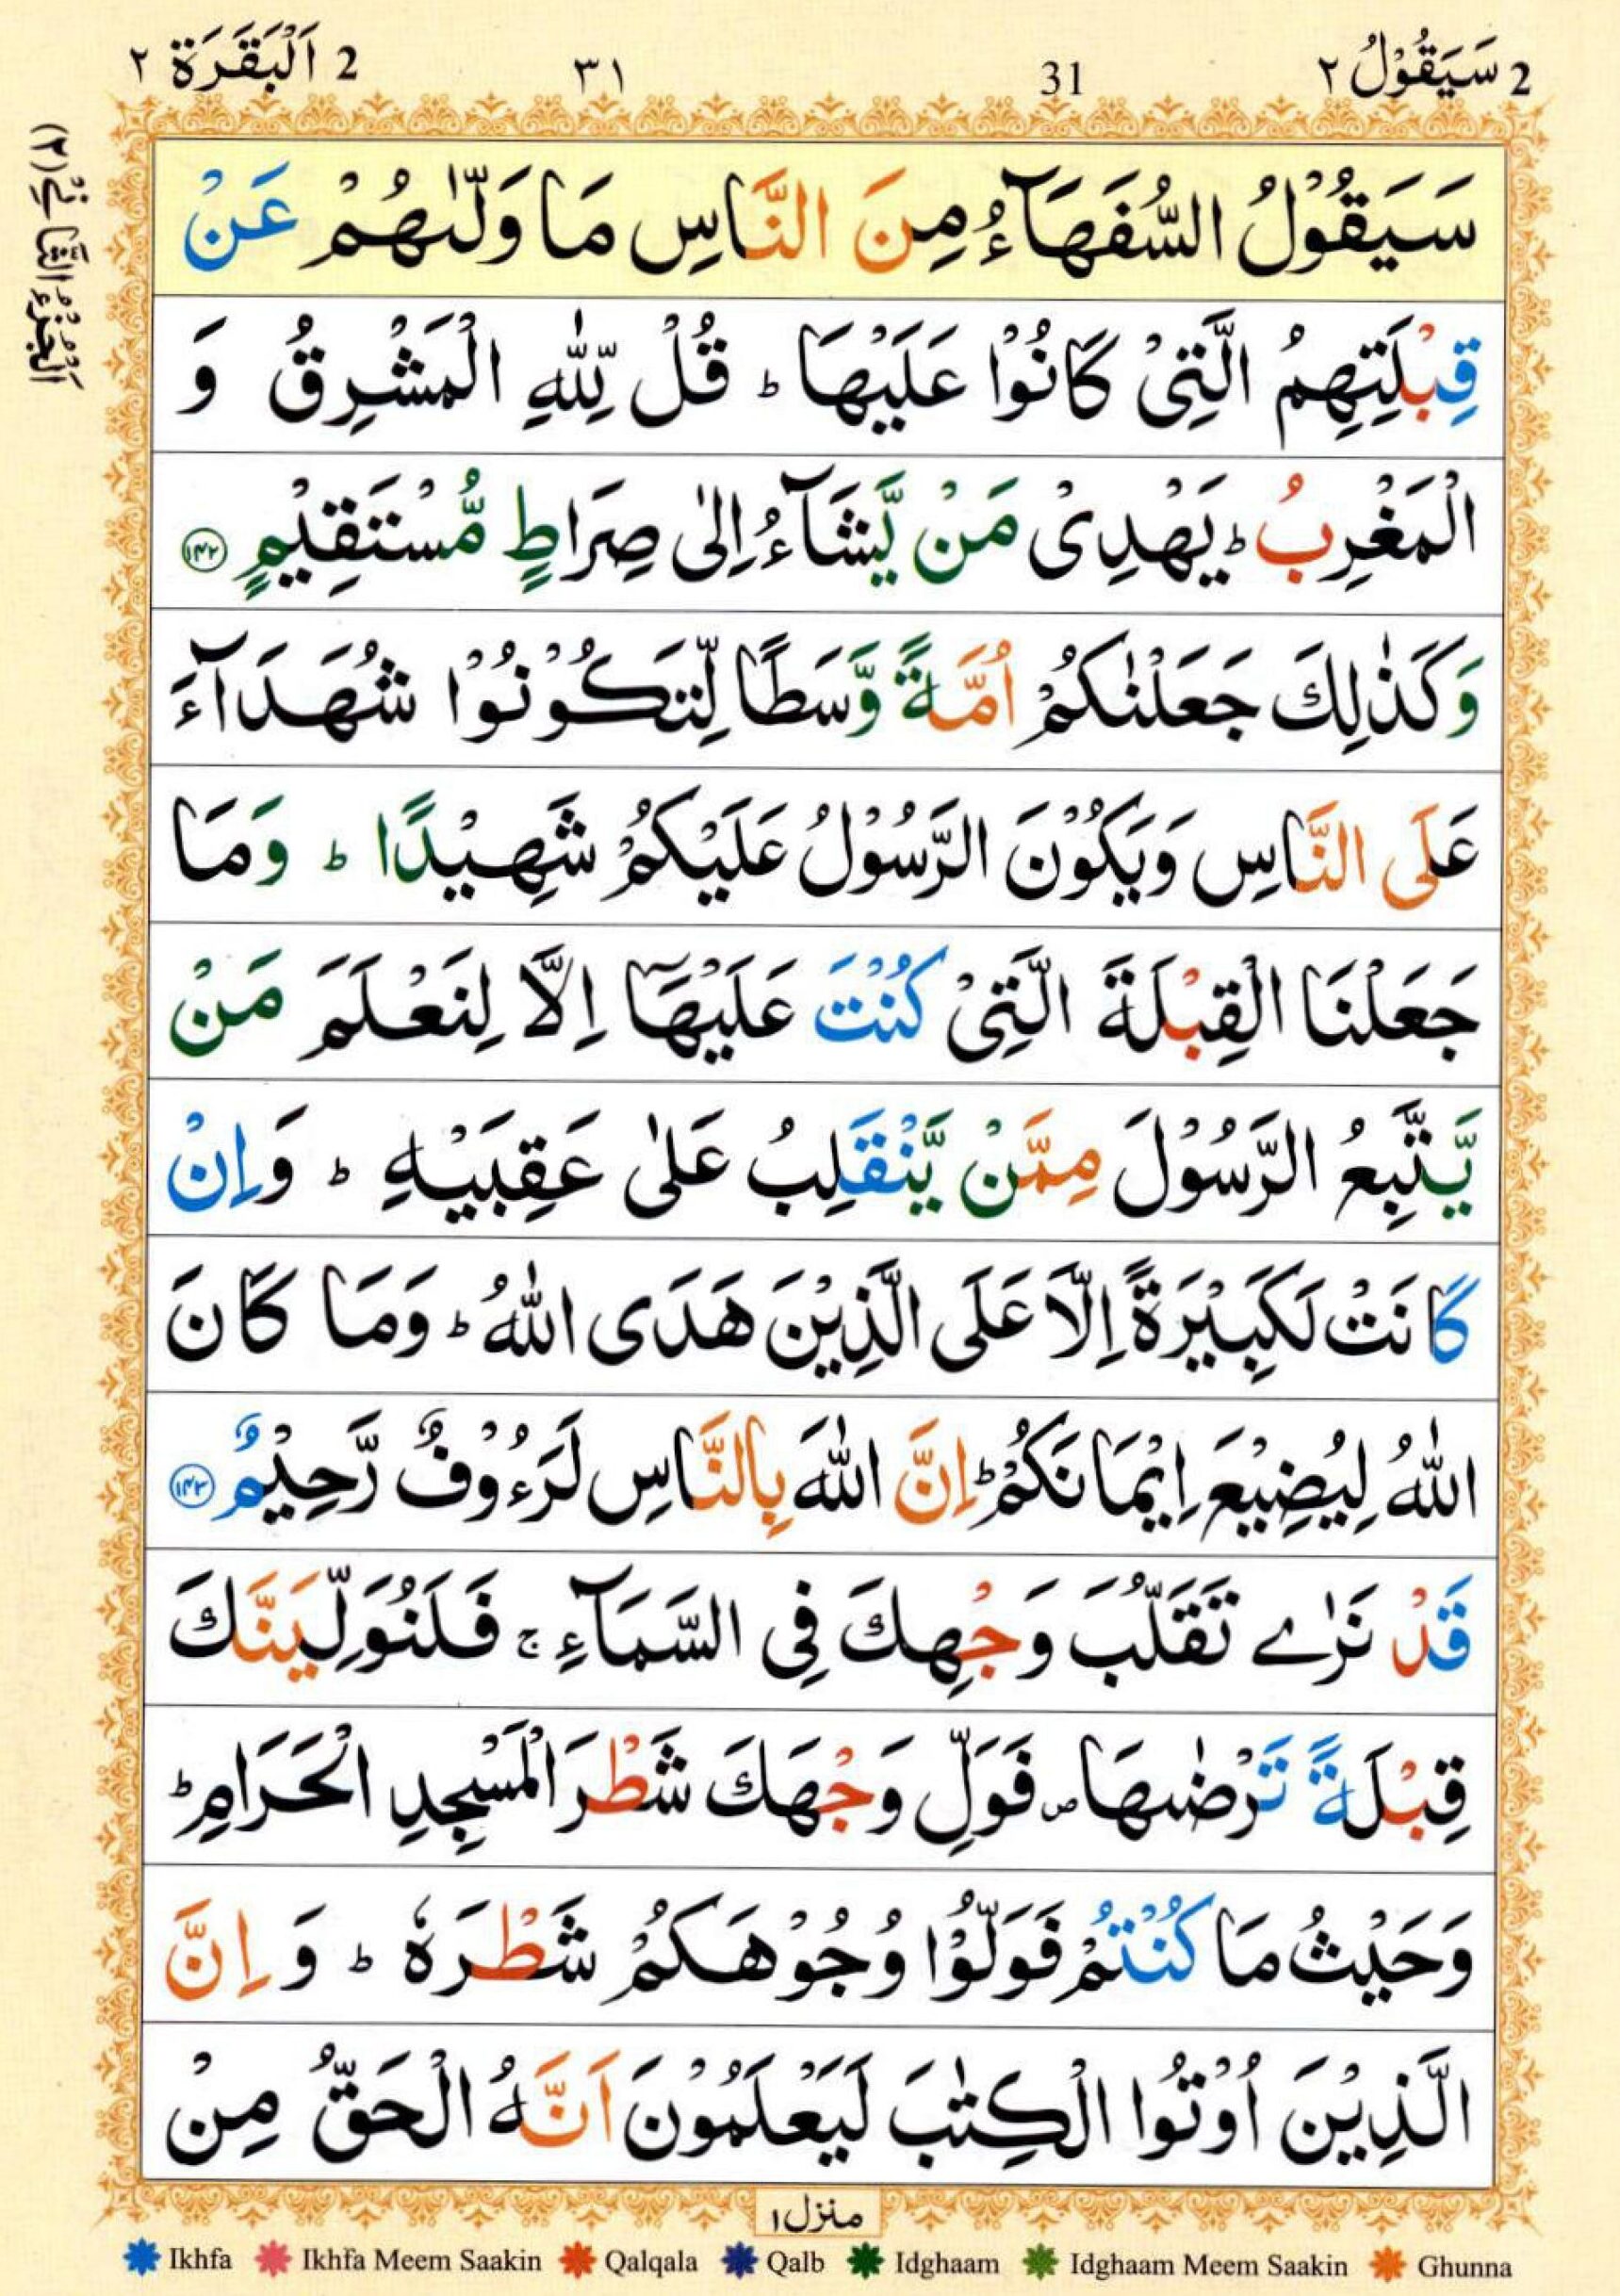 2 سَيَقُوْلُ ٢ 31 ٣١ 2 اَلْبَقَرَة ٢
اَلْجُزْءُ الثَّانِيْ (٢)
سَيَقُوْلُ السُّفَهَآءُ مِنَ النَّاسِ مَا وَلّٰىهُمْ عَنْ
قِبْلَتِهِمُ الَّتِىْ كَانُوْا عَلَيْهَا ؕ قُلْ لِّلّٰهِ الْمَشْرِقُ وَ
الْمَغْرِبُ ؕ يَهْدِىْ مَنْ يَّشَآءُ اِلٰى صِرَاطٍ مُّسْتَقِيْمٍ ۝١٤٢
وَكَذٰلِكَ جَعَلْنٰكُمْ اُمَّةً وَّسَطًا لِّتَكُوْنُوْا شُهَدَآءَ
عَلَى النَّاسِ وَيَكُوْنَ الرَّسُوْلُ عَلَيْكُمْ شَهِيْدًا ؕ وَمَا
جَعَلْنَا الْقِبْلَةَ الَّتِىْ كُنْتَ عَلَيْهَآ اِلَّا لِنَعْلَمَ مَنْ
يَّتَّبِعُ الرَّسُوْلَ مِمَّنْ يَّنْقَلِبُ عَلٰى عَقِبَيْهِ ؕ وَاِنْ
كَانَتْ لَكَبِيْرَةً اِلَّا عَلَى الَّذِيْنَ هَدَى اللّٰهُ ؕ وَمَا كَانَ
اللّٰهُ لِيُضِيْعَ اِيْمَانَكُمْ ؕ اِنَّ اللّٰهَ بِالنَّاسِ لَرَءُوْفٌ رَّحِيْمٌ ۝١٤٣
قَدْ نَرٰى تَقَلُّبَ وَجْهِكَ فِى السَّمَآءِ ۚ فَلَنُوَلِّيَنَّكَ
قِبْلَةً تَرْضٰىهَا ۪ فَوَلِّ وَجْهَكَ شَطْرَ الْمَسْجِدِ الْحَرَامِ ؕ
وَحَيْثُ مَا كُنْتُمْ فَوَلُّوْا وُجُوْهَكُمْ شَطْرَهٗ ؕ وَ اِنَّ
الَّذِيْنَ اُوْتُوا الْكِتٰبَ لَيَعْلَمُوْنَ اَنَّهُ الْحَقُّ مِنْ
منزل ١
Ikhfa Ikhfa Meem Saakin Qalqala Qalb Idghaam Idghaam Meem Saakin Ghunna